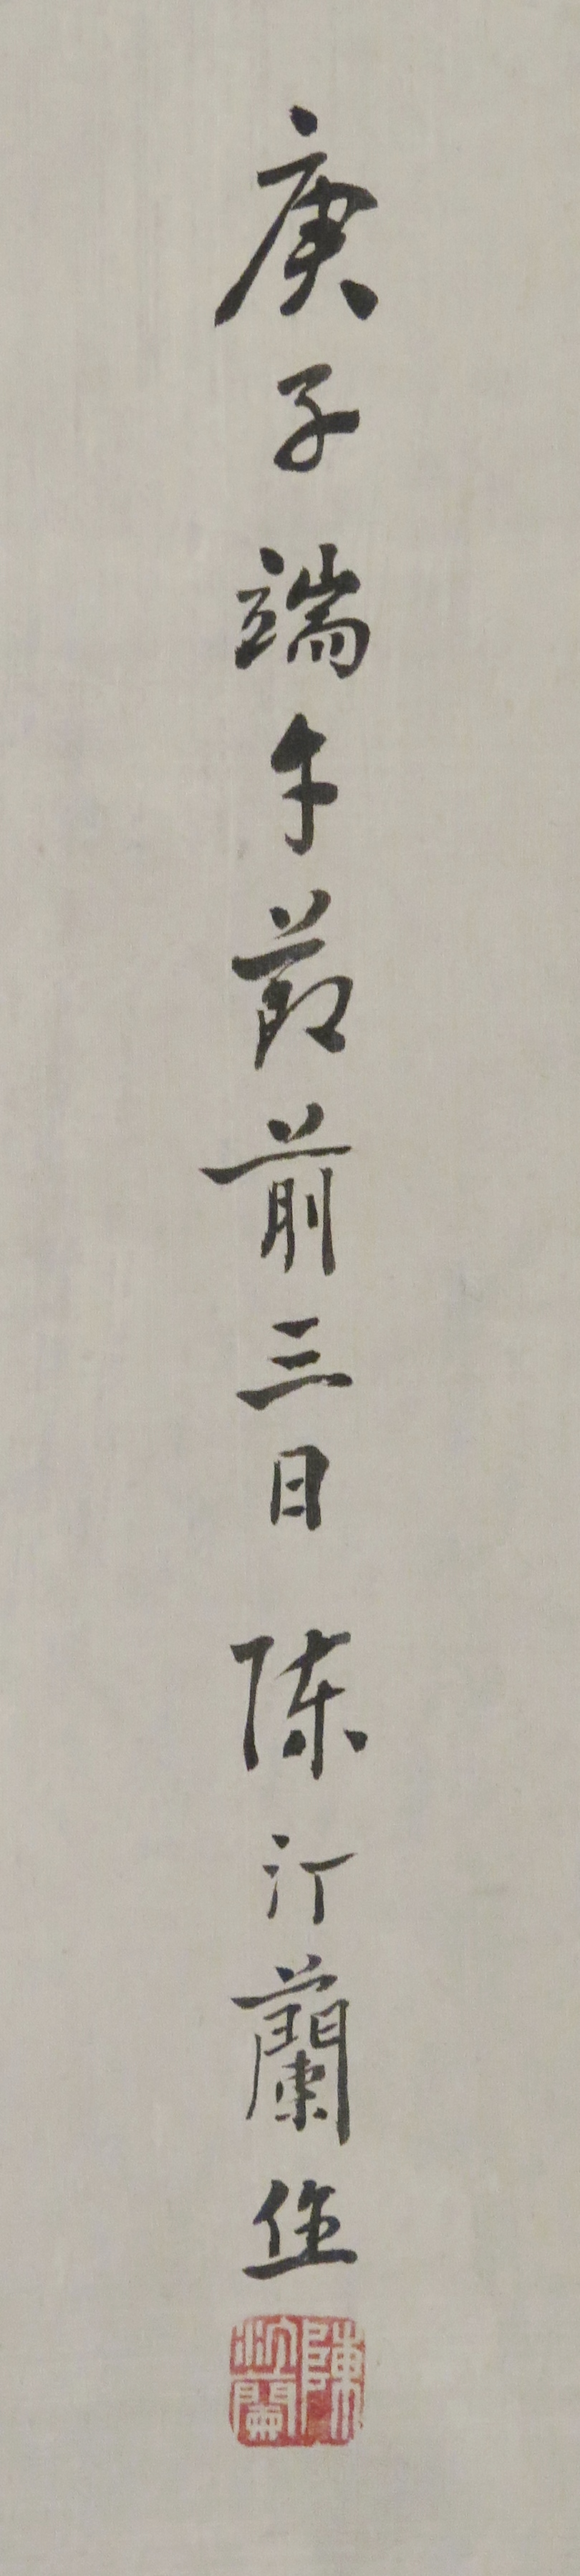 庚子端午节前三日 陈汀蘭作
陳汀蘭